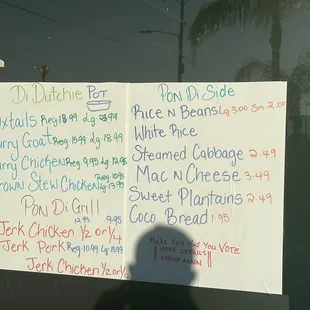 Di Dutchie Pot
Oxtails Reg 18.99 Lg
Curry Goat Reg 15.99 Lg 18.99
Curry Chicken Reg 9.95 Lg 12.95
Brown Stew Chicken Reg 10.95
Lg 13.95
Pon Di Grill
12.95 9.95
Jerk Chicken 1/2 or 1/4
Jerk Pork Reg 10.99 Lg 15.99
Jerk Chicken 1/2 or 1/4
Pon Di Side
Rice n Beans Lg 3.00 Sm 2.00
White Rice
Steamed Cabbage 2.49
Mac n Cheese 3.49
Sweet Plantains 2.49
Coco Bread 1.95
Make Sure Not You VOTE
Again